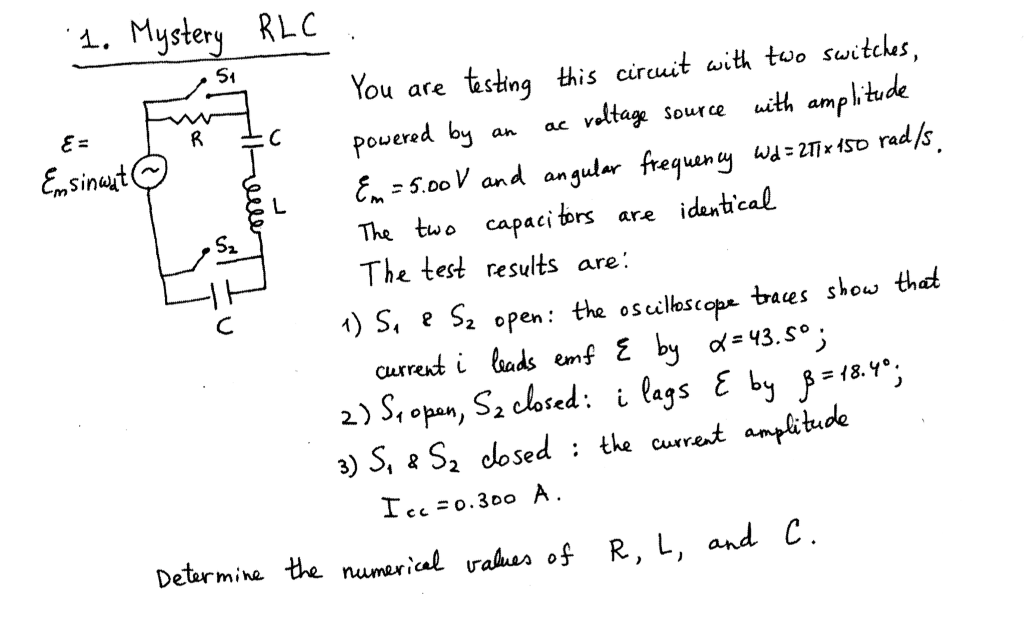 1. Mystery RLC
S1
R
C
ε=
εm sinωdt
L
S2
C
You are testing this circuit with two switches,
powered by an ac voltage source with amplitude
εm = 5.00 V and angular frequency ωd = 2π×150 rad/s.
The two capacitors are identical
The test results are:
1) S1 & S2 open: the oscilloscope traces show that
current i leads emf ε by α=43.5°;
2) S1 open, S2 closed: i lags ε by β=18.4°;
3) S1 & S2 closed: the current amplitude
Icc = 0.300 A.
Determine the numerical values of R, L, and C.